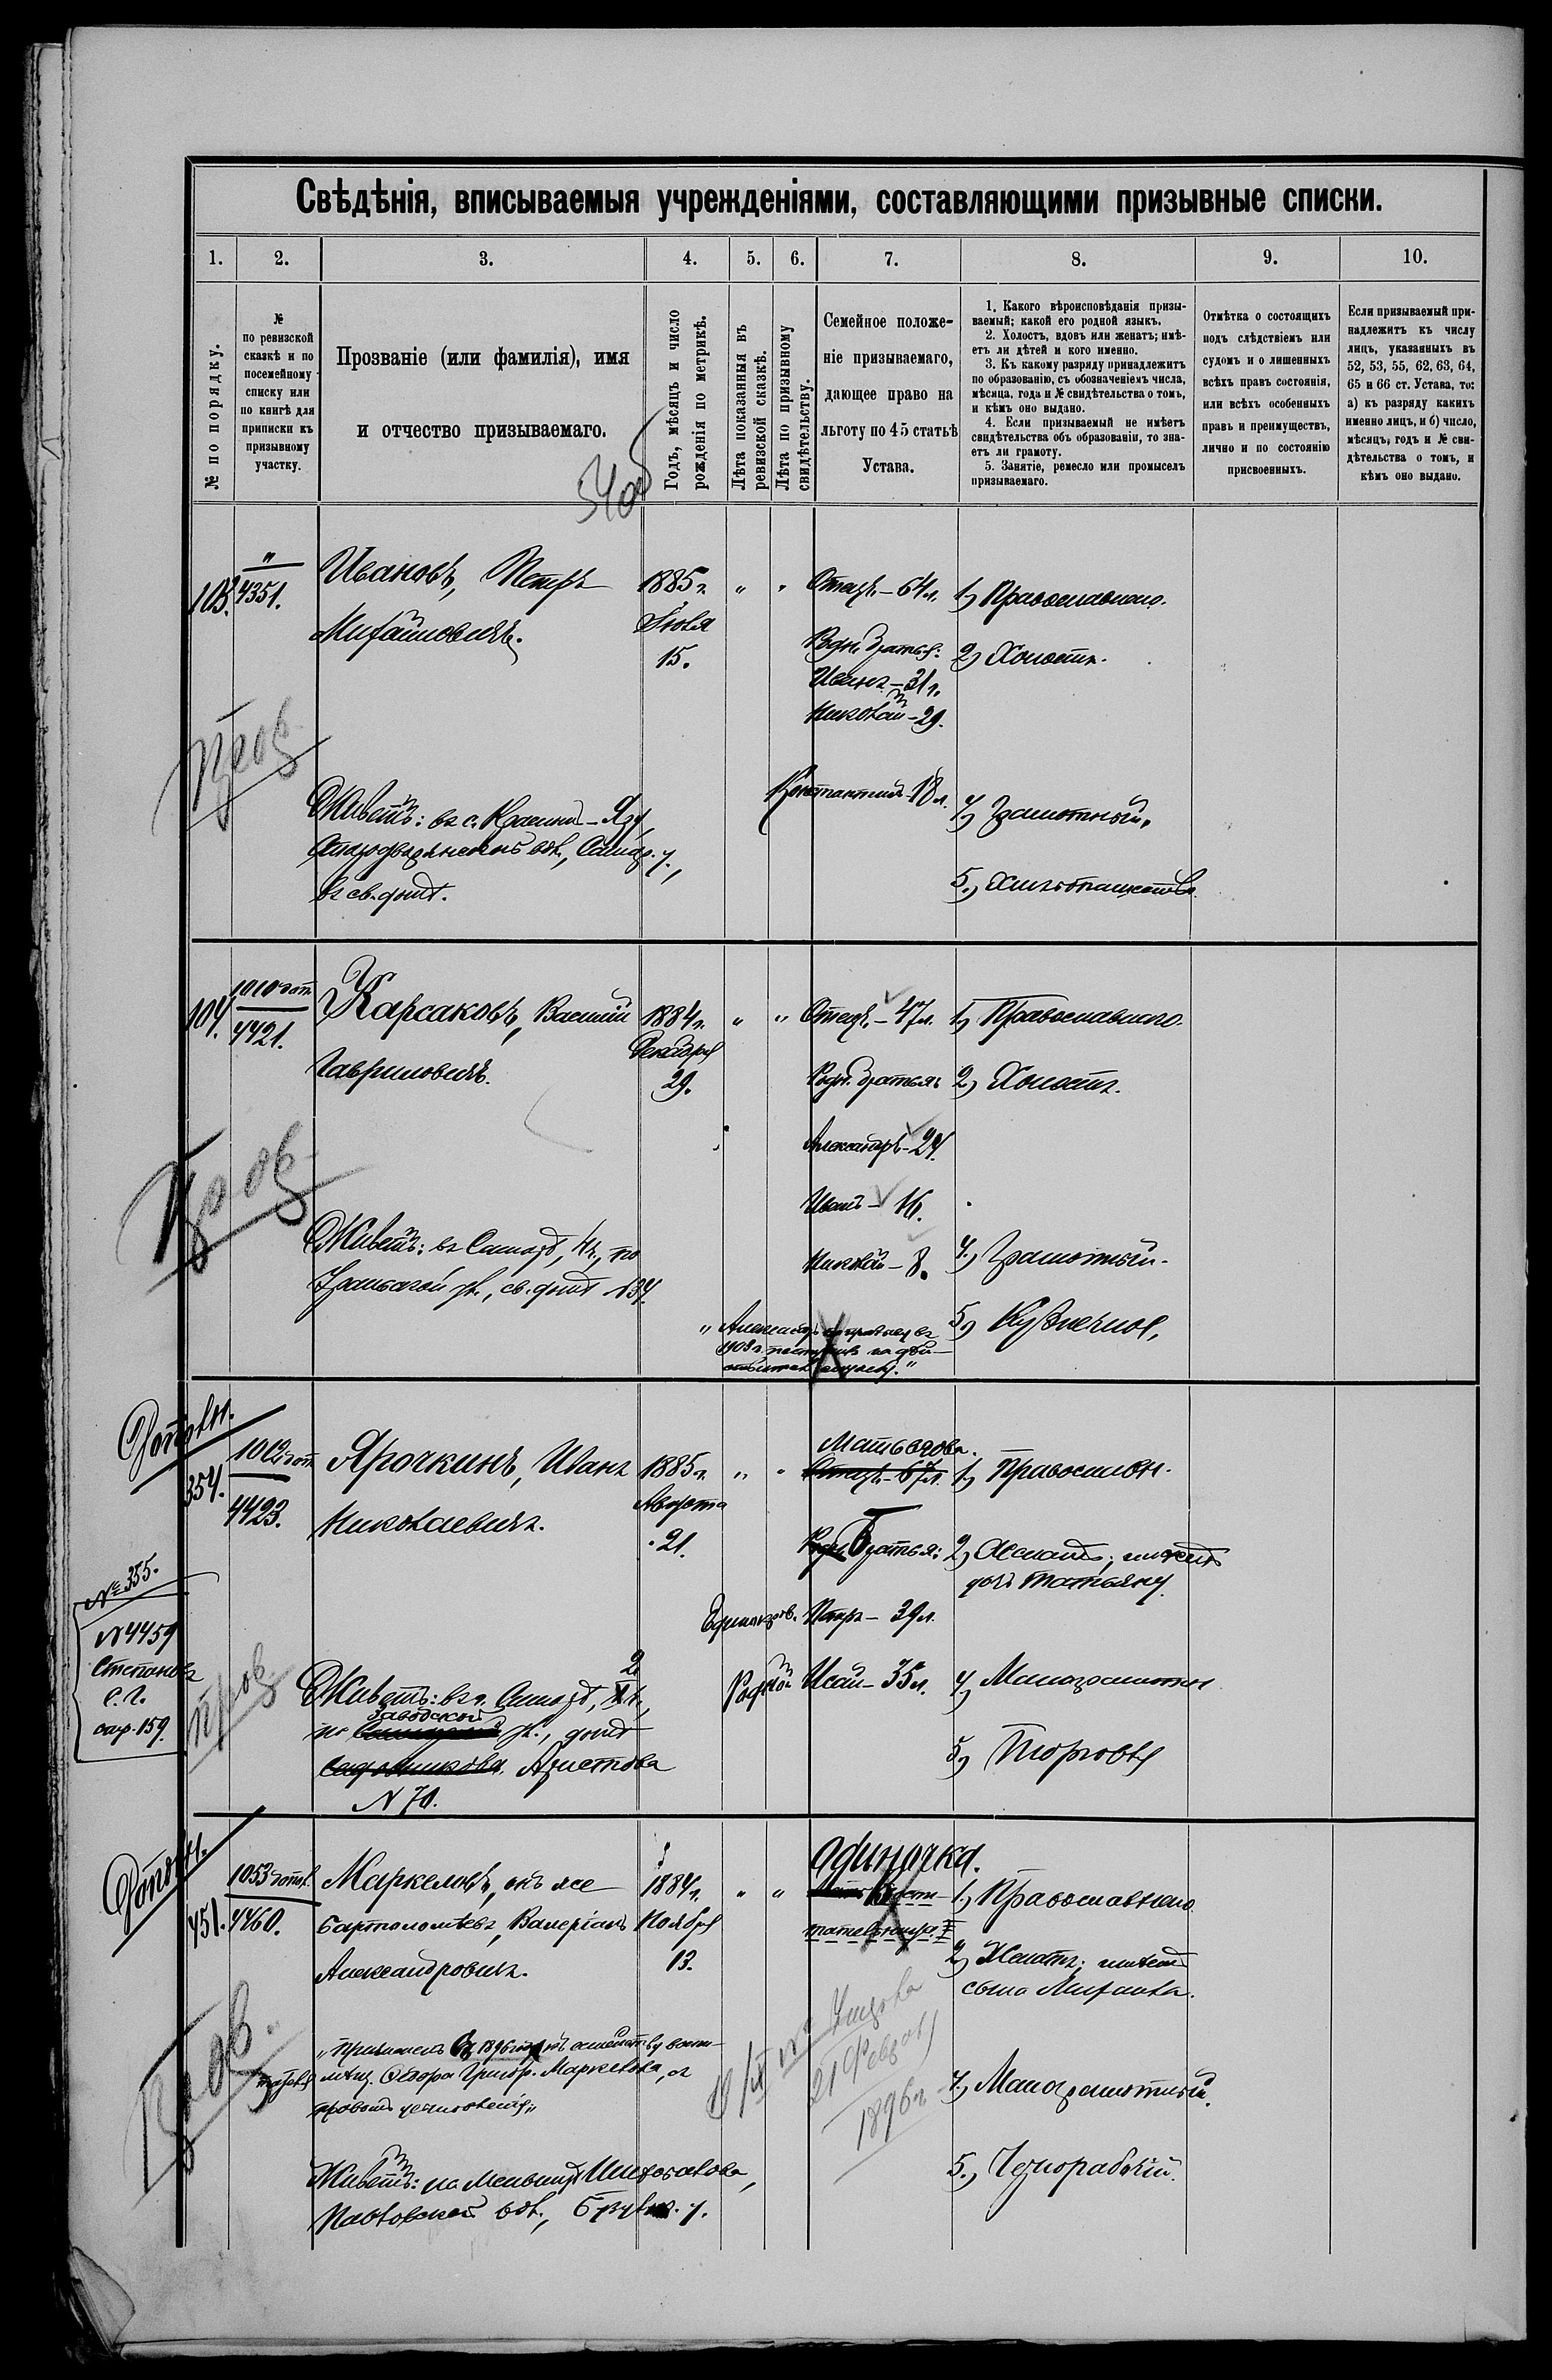 Свѣдѣнія, вписываемыя учрежденіями, составляющими призывные списки.
1. 2. 3. 4. 5. 6. 7. 8. 9. 10.
№ по порядку.
№
по ревизской
сказкѣ и по
посемейному
списку или
по книгѣ для
приписки къ
призывному
участку.
Прозваніе (или фамилія), имя
и отчество призываемаго.
Годъ, мѣсяцъ и число
рожденія по метрикѣ.
Лѣта показанныя въ
ревизской сказкѣ.
Лѣта по призывному
свидѣтельству.
Семейное положе-
ніе призываемаго,
дающее право на
льготу по 45 статьѣ
Устава.
1. Какого вѣроисповѣданія призы-
ваемый; какой его родной языкъ.
2. Холостъ, вдовъ или женатъ; имѣ-
етъ ли дѣтей и кого именно.
3. Къ какому разряду принадлежитъ
по образованію, съ обозначеніемъ числа,
мѣсяца, года и № свидѣтельства о томъ,
и кѣмъ оно выдано.
4. Если призываемый не имѣетъ
свидѣтельства объ образованіи, то зна-
етъ ли грамоту.
5. Занятіе, ремесло или промыселъ
призываемаго.
Отмѣтка о состоящихъ
подъ слѣдствіемъ или
судомъ и о лишенныхъ
всѣхъ правъ состоянія,
или всѣхъ особенныхъ
правъ и преимуществъ,
лично и по состоянію
присвоенныхъ.
Если призываемый при-
надлежитъ къ числу
лицъ, указанныхъ въ
52, 53, 55, 62, 63, 64,
65 и 66 ст. Устава, то:
а) къ разряду какихъ
именно лицъ, и б) число,
мѣсяцъ, годъ и № сви-
дѣтельства о томъ, и
кѣмъ оно выдано.
54об
103. "
4351.
Ивановъ, Петръ
Михайловичъ.
1885 г.
Іюля
15.
" "
Отецъ - 64 л.
Родн. братья:
Иванъ - 31 г.
Николай - 29.
Константинъ - 18 л.
1) Православнаго.
2) Холостъ.
4) Грамотный.
5.) Хлѣбопашество.
Пров
Живетъ: въ с. Красный-Яръ,
Стародворянской вол., Самар. у.,
въ св. домѣ.
104. 1010 гот
4421.
Карсаковъ, Василій
Гавриловичъ.
1884 г.
Декабря
29.
" "
Отецъ - 47 л.
Родн. братья:
Александръ - 24.
Иванъ - 16.
Николай - 8.
1) Православнаго.
2) Холостъ.
4.) Грамотный.
5) Кузнечное,
Пров
Живетъ: въ Самарѣ, 4 ч., по
Уральской ул., св. домъ № 34.
"Александръ въ
1903 г. поступилъ на дѣй-
службу."
Дополн.
354. 1012 гот
4423.
Ярочкинъ, Иванъ
Николаевичъ.
1885 г.
Августа
21.
" "
Мать вдова.
Отецъ - 67 л.
Родн. Братья:
Единокров. Петръ - 39 л.
Родной Исай - 35 л.
1) Православн.
2) Женатъ; имѣетъ
дочь Татьяну.
4) Малограмотн
5) Торговля
№ 355.
№ 4459
Степановъ
С. Г.
стр. 159.
Пров
Живетъ: въ г. Самарѣ, 2 ч.,
Заводской
по ул., домъ
Садовникова. Аристова
№ 70.
Дополн.
451. 1053 готов.
4460.
Маркеловъ, онъ же
Бартоломѣевъ, Валеріанъ
Александровичъ.
1884 г.
Ноября
13.
" "
Одиночка.
1) Православнаго
2) Женатъ; имѣетъ
сына Михаила.
4) Малограмотный.
5.) Чернорабочій.
Пров.
21 Февраля
1896 г.
Живетъ: на Мельницѣ
Павловской вол., Бузул. у.